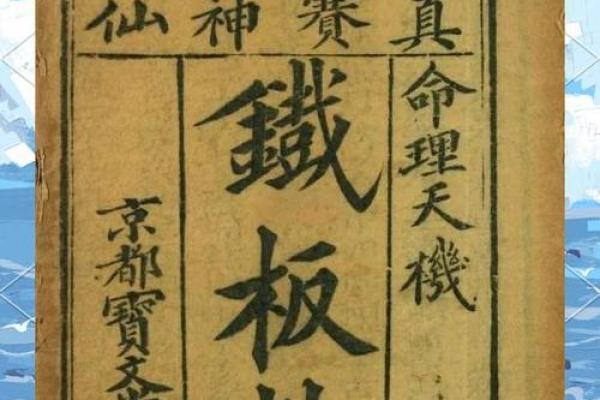 真賽神仙
命理天機
鐵板
京都寶文